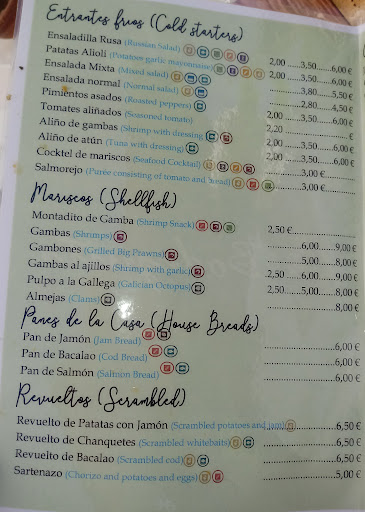 Entrantes frios (Cold starters)
Ensaladilla Rusa (Russian Salad) 2,00 .....3,50......6,00 €
Patatas Alioli (Potatoes garlic mayonnaise) 2,00 .....3,50......6,00 €
Ensalada Mixta (Mixed salad) 6,00 €
Ensalada normal (Normal salad) 3,80......5,50 €
Pimientos asados (Roasted peppers) 2,80......4,50 €
Tomates aliñados (Seasoned tomato) 2,00 .....3,50......6,00 €
Aliño de gambas (Shrimp with dressing) 2,20 €
Aliño de atún (Tuna with dressing) 2,00 .....3,50......6,00 €
Cocktel de mariscos (Seafood Cocktail) 3,00 €
Salmorejo (Purée consisting of tomato and bread) 3,00 €
Mariscos (Shellfish)
Montadito de Gamba (Shrimp Snack) 2,50 €
Gambas (Shrimps) 6,00......9,00 €
Gambones (Grilled Big Prawns) 5,00......8,00 €
Gambas al ajillos (Shrimp with garlic) 2,50 ......6,00......9,00 €
Pulpo a la Gallega (Galician Octopus) 2,50......5,00......8,00 €
Almejas (Clams) 8,00 €
Panes de la Casa (House Breads)
Pan de Jamón (Jam Bread) 6,00 €
Pan de Bacalao (Cod Bread) 6,00 €
Pan de Salmón (Salmon Bread) 6,00 €
Revueltos (Scrambled)
Revuelto de Patatas con Jamón (Scrambled potatoes and jam) 6,50 €
Revuelto de Chanquetes (Scrambled whitebaits) 6,50 €
Revuelto de Bacalao (Scrambled cod) 6,50 €
Sartenazo (Chorizo and potatoes and eggs) 5,00 €